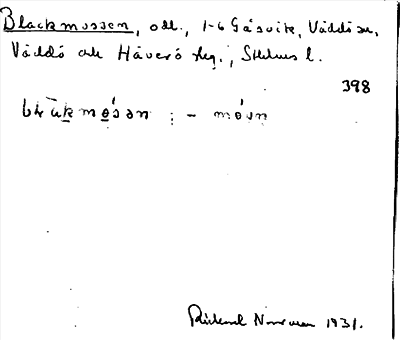 Blackmossen, odl., 1-6 Gåsvik, Väddö sn,
Väddö och Häverö skg., Sthlms l.
398
: -
Rickard Norrman 1931.